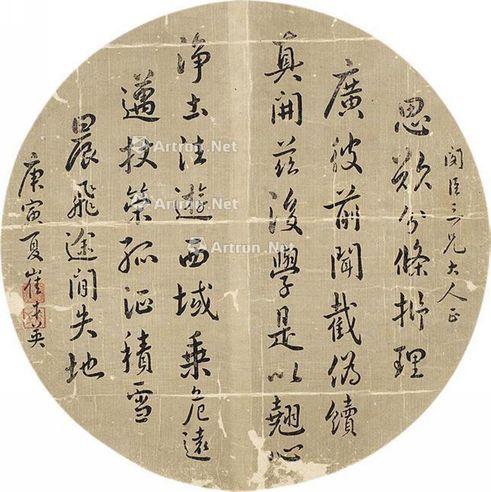 閏臣三兄大人正
思欲分條析理
廣彼前聞截偽續
真開茲後學是以翹心
淨土往遊西域乘危遠
邁杖策孤征積雪
晨飛途間失地
庚寅夏崔 英
Artron.Net
Artron.Net
Artron.Net